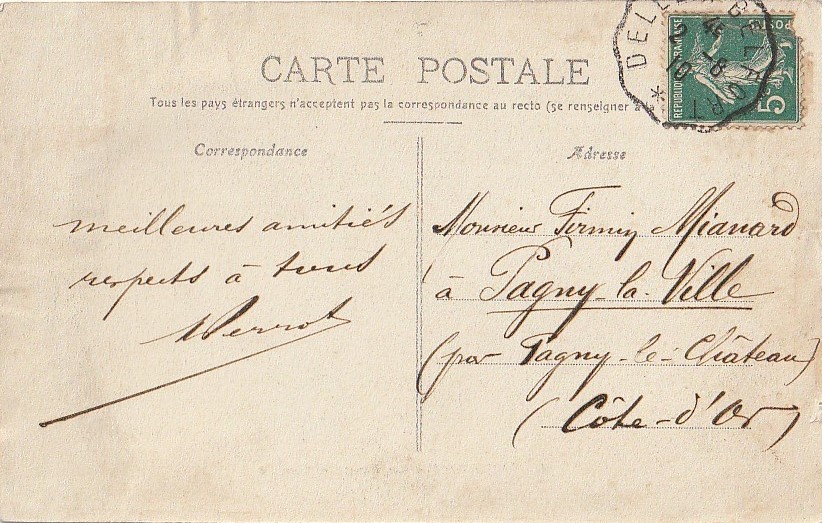 CARTE POSTALE
Tous les pays étrangers n'acceptent pas la correspondance au recto (se renseigner à
Correspondance
meilleures amitiés
respects à tous
Perrot
Adresse
Monsieur Firmin Mianard
à Pagny-la-Ville
(par Pagny-le-Château)
(Côte-d'Or)
DELLE BELFORT
2 -8
10
REPUBLIQUE FRANÇAISE
POSTES
5